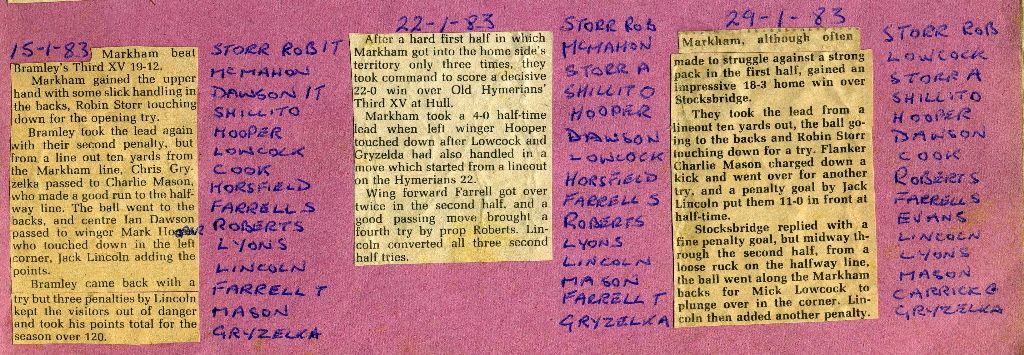 15-1-83 Markham beat
Bramley's Third XV 19-12.
Markham gained the upper
hand with some slick handling in
the backs, Robin Storr touching
down for the opening try.
Bramley took the lead again
with their second penalty, but
from a line out ten yards from
the Markham line, Chris Gry-
zelka passed to Charlie Mason,
who made a good run to the half-
way line. The ball went to the
backs, and centre Ian Dawson
passed to winger Mark Hooper
who touched down in the left
corner, Jack Lincoln adding the
points.
Bramley came back with a
try but three penalties by Lincoln
kept the visitors out of danger
and took his points total for the
season over 120.
STORR ROB 1T
McMAHON
DAWSON 1T
SHILLITO
HOOPER
LOWCOCK
COOK
HORSFIELD
FARRELL S
ROBERTS
LYONS
LINCOLN
FARRELL T
MASON
GRYZELKA
22-1-83
After a hard first half in which
Markham got into the home side's
territory only three times, they
took command to score a decisive
22-0 win over Old Hymerians'
Third XV at Hull.
Markham took a 4-0 half-time
lead when left winger Hooper
touched down after Lowcock and
Gryzelda had also handled in a
move which started from a lineout
on the Hymerians 22.
Wing forward Farrell got over
twice in the second half, and a
good passing move brought a
fourth try by prop Roberts. Lin-
coln converted all three second
half tries.
STORR ROB
McMAHON
STORR A
SHILLITO
HOOPER
DAWSON
LOWCOCK
HORSFIELD
FARRELL S
ROBERTS
LYONS
LINCOLN
MASON
FARRELL T
GRYZELKA
29-1-83
Markham, although often
made to struggle against a strong
pack in the first half, gained an
impressive 18-3 home win over
Stocksbridge.
They took the lead from a
lineout ten yards out, the ball go-
ing to the backs and Robin Storr
touching down for a try. Flanker
Charlie Mason charged down a
kick and went over for another
try, and a penalty goal by Jack
Lincoln put them 11-0 in front at
half-time.
Stocksbridge replied with a
fine penalty goal, but midway th-
rough the second half, from a
loose ruck on the halfway line,
the ball went along the Markham
backs for Mick Lowcock to
plunge over in the corner. Lin-
coln then added another penalty.
STORR ROB
LOWCOCK
STORR A
SHILLITO
HOOPER
DAWSON
COOK
ROBERTS
FARRELL S
EVANS
LINCOLN
LYONS
MASON
CARRICK G
GRYZELKA